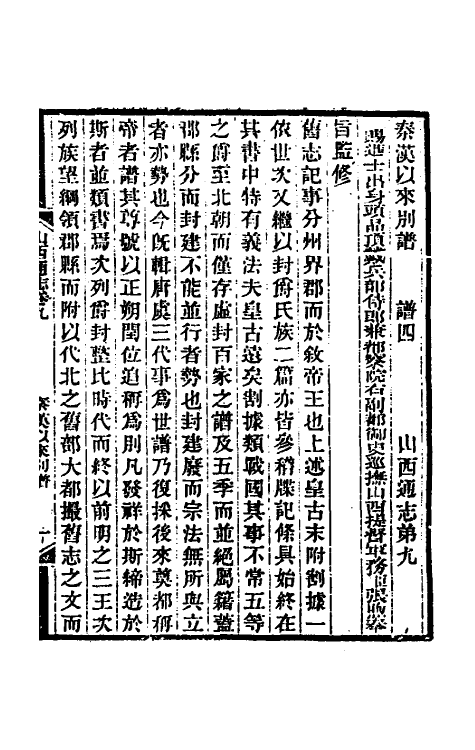 秦漢以來別譜　譜四　山西通志第九
賜進士出身頭品頂戴兵部侍郎兼都察院右副都御史巡撫山西提督軍務臣張煦奉
旨監修
舊志記事分州界郡而於敘帝王也上述皇古末附割據一
依世次又繼以封爵氏族二篇亦皆參稽牒記條具始終在
其書中特有義法夫皇古遠矣割據類戰國其事不常五等
之爵至北朝而僅存虛封百家之譜及五季而並絕屬籍蓋
郡縣分而封建不能並行者勢也封建廢而宗法無所與立
者亦勢也今既輯唐虞三代事為世譜乃復採後來奠都稱
帝者譜其尊號以正朔閏位追稱為別凡發祥於斯締造於
斯者並類書焉次列爵封整比時代而終以前明之三王次
列族望綱領郡縣而附以代北之舊部大都撮舊志之文而
山西通志卷九
秦漢以來別譜
一